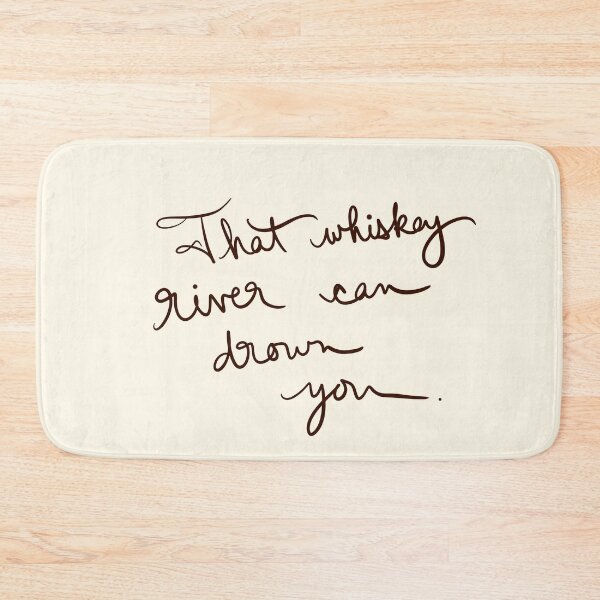 That whiskey
river can
drown
you.